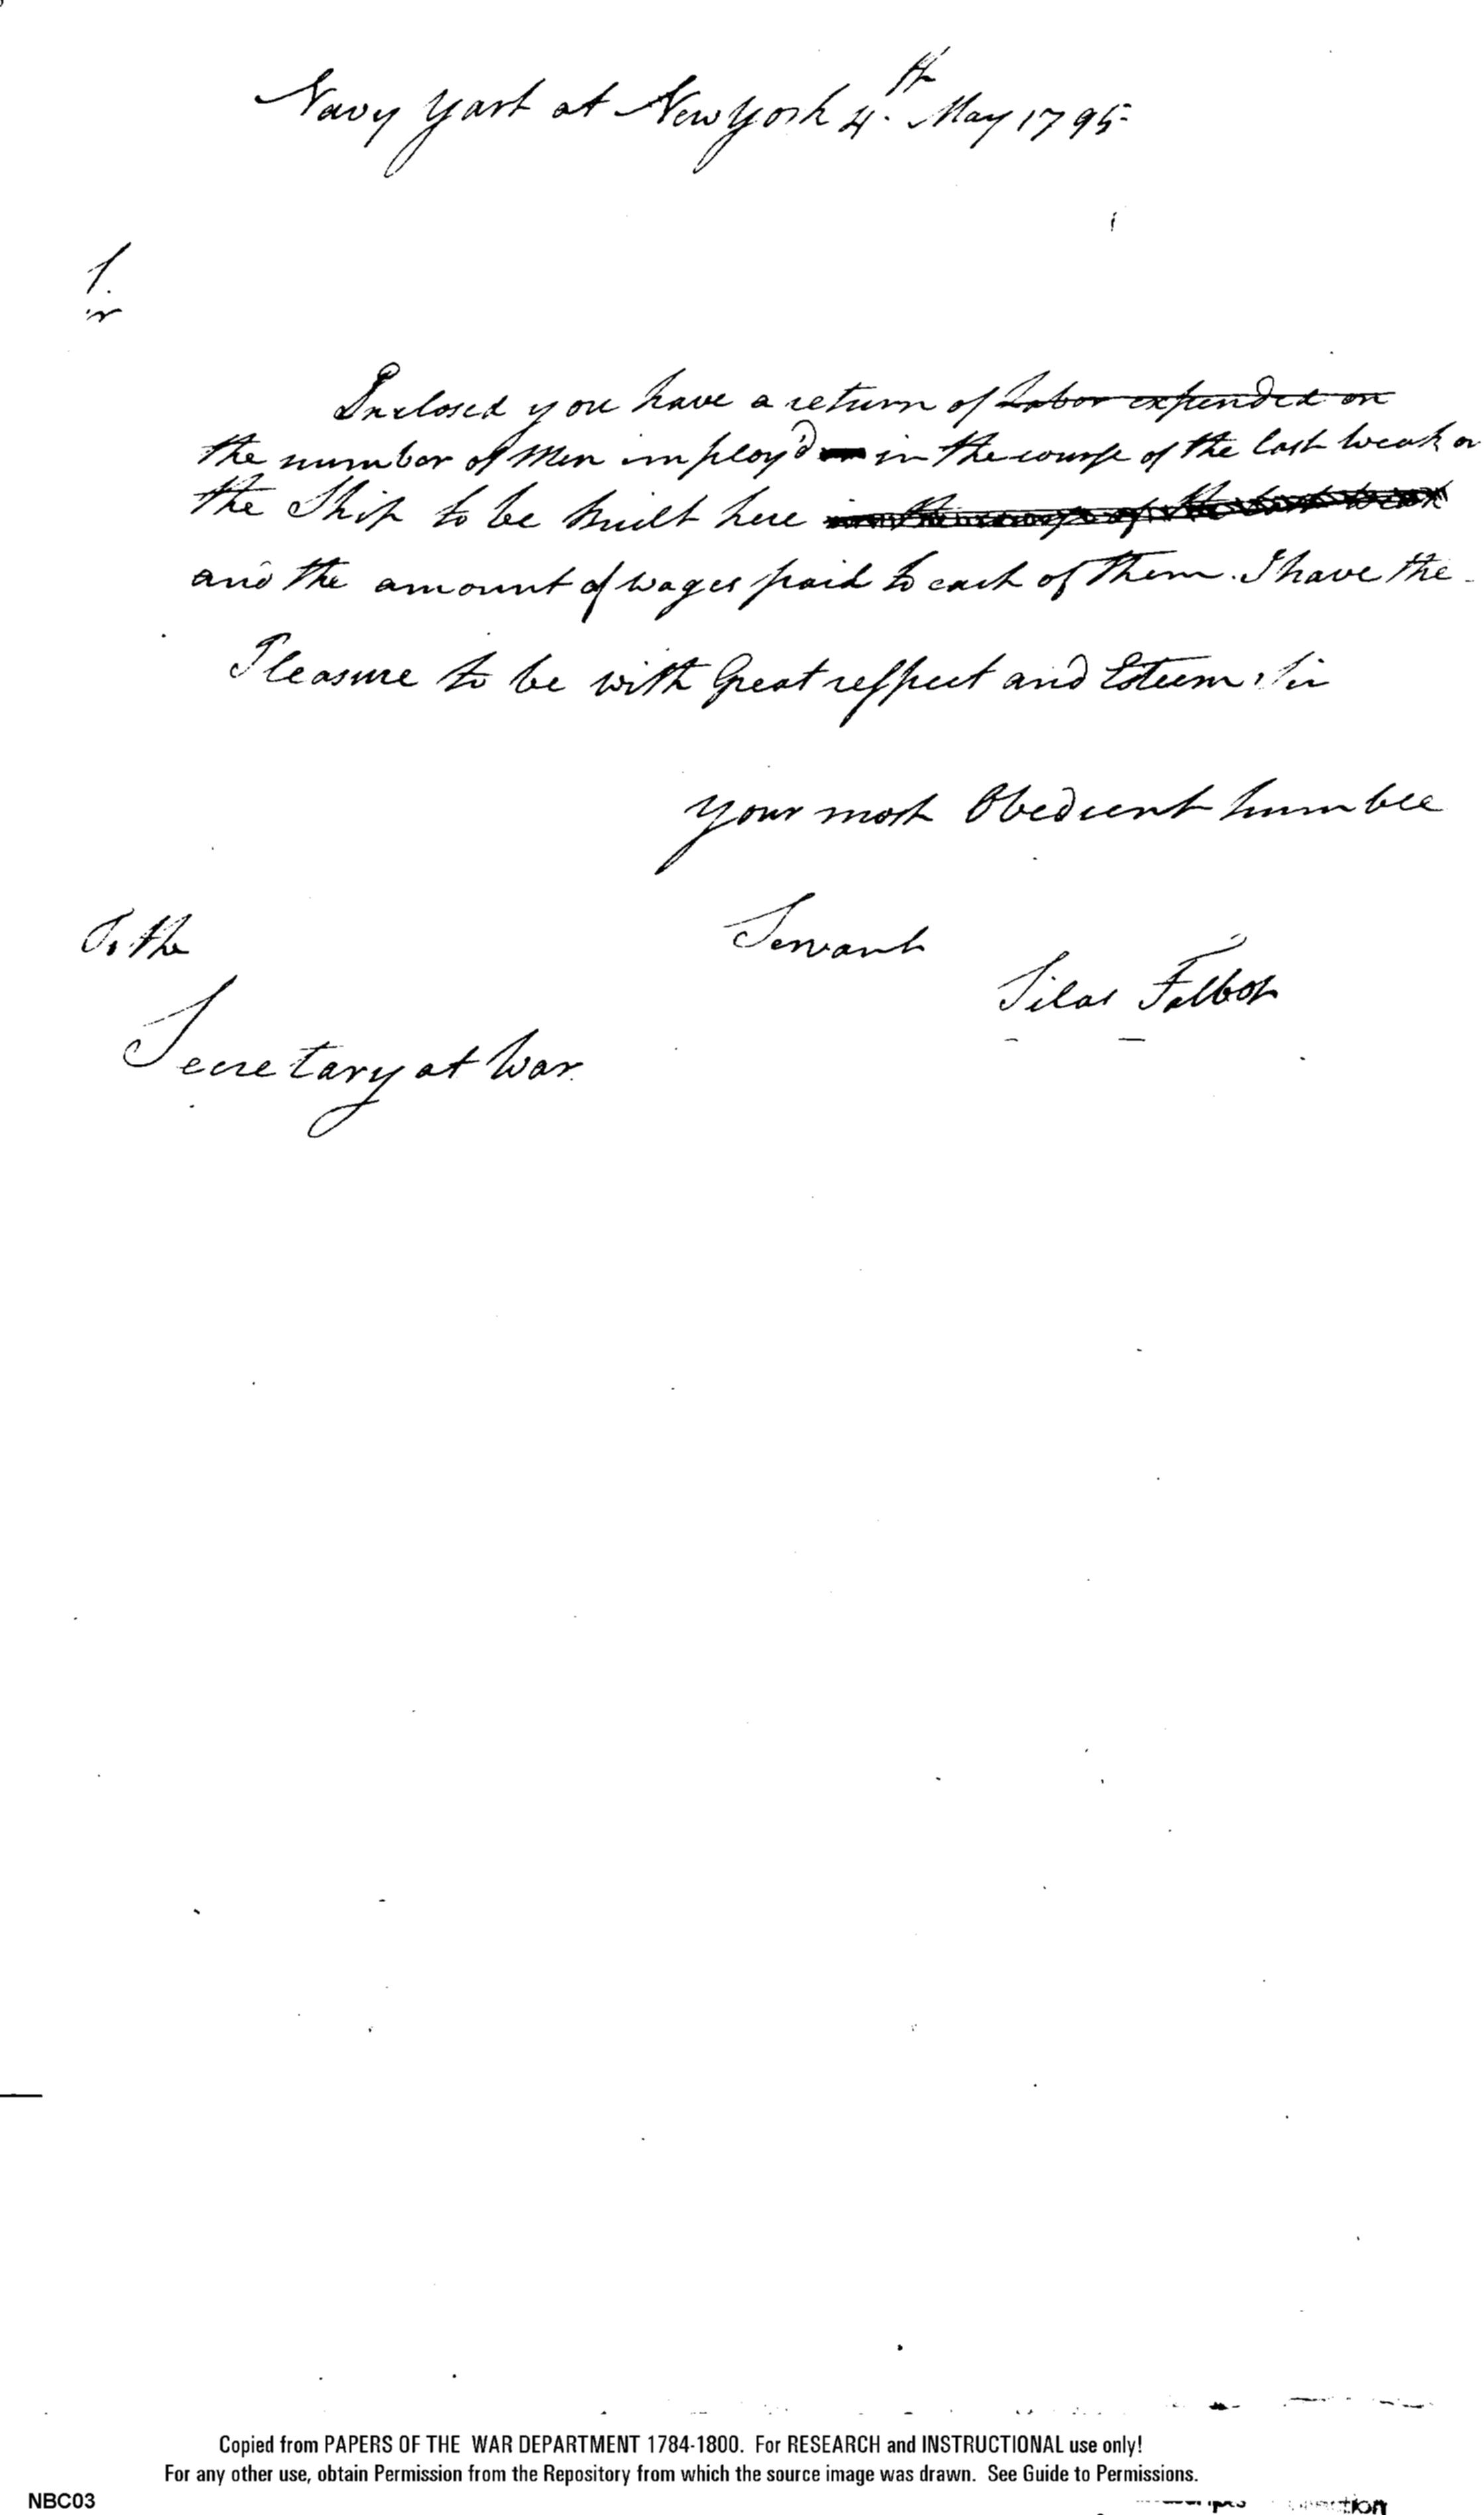 Navy Yart at New York 4th May 1795
Sir
Inclosed you have a return of Labor expended on
the number of Men imploy'd in the course of the last weak
the Ship to be built here in the course of the last weak
and the amount of wages paid to each of them. I have the
Pleasure to be with Great respect and Esteem, Sir
your most Obedient humble
Servant
Silas Talbot
To the
Secretary at War.
Copied from PAPERS OF THE WAR DEPARTMENT 1784-1800. For RESEARCH and INSTRUCTIONAL use only!
For any other use, obtain Permission from the Repository from which the source image was drawn. See Guide to Permissions.
NBC03